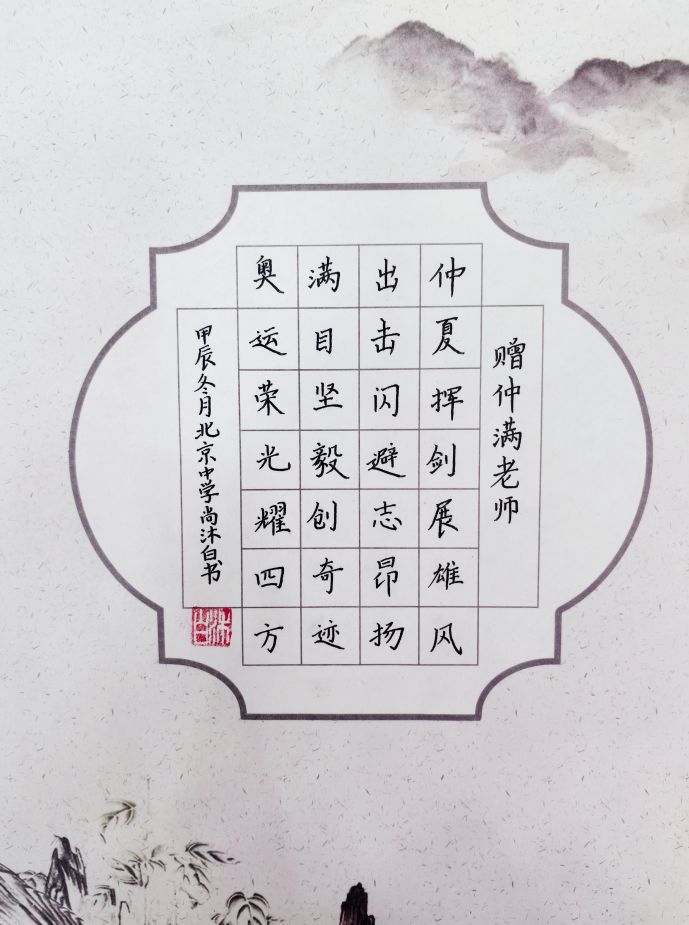 赠仲满老师
仲夏挥剑展雄风
出击闪避志昂扬
满目坚毅创奇迹
奥运荣光耀四方
甲辰冬月北京中学尚沐白书